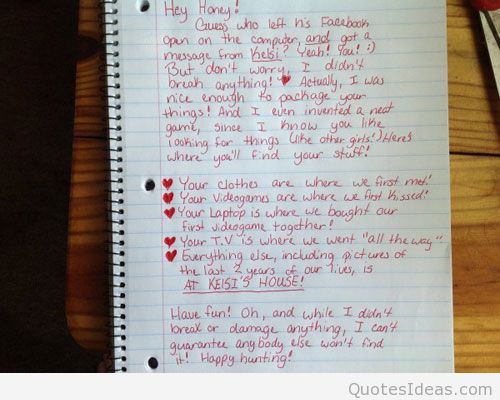 Hey Honey!
Guess who left his Facebook
open on the computer, and got a
message from Kelsi? Yeah! You! :)
But don't worry, I didn't
break anything! ♥ Actually, I was
nice enough to package your
things! And I even invented a neat
game, since I know you like
looking for things (like other girls!) Here's
where you'll find your stuff!
♥ Your clothes are where we first met!
♥ Your videogames are where we first kissed!
♥ Your laptop is where we bought our
first videogame together!
♥ Your T.V is where we went "all the way"
♥ Everything else, including pictures of
the last 2 years of our lives, is
AT KELSI'S HOUSE!
Have fun! Oh, and while I didn't
break or damage anything, I can't
guarantee anybody else won't find
it! Happy hunting!
QuotesIdeas.com